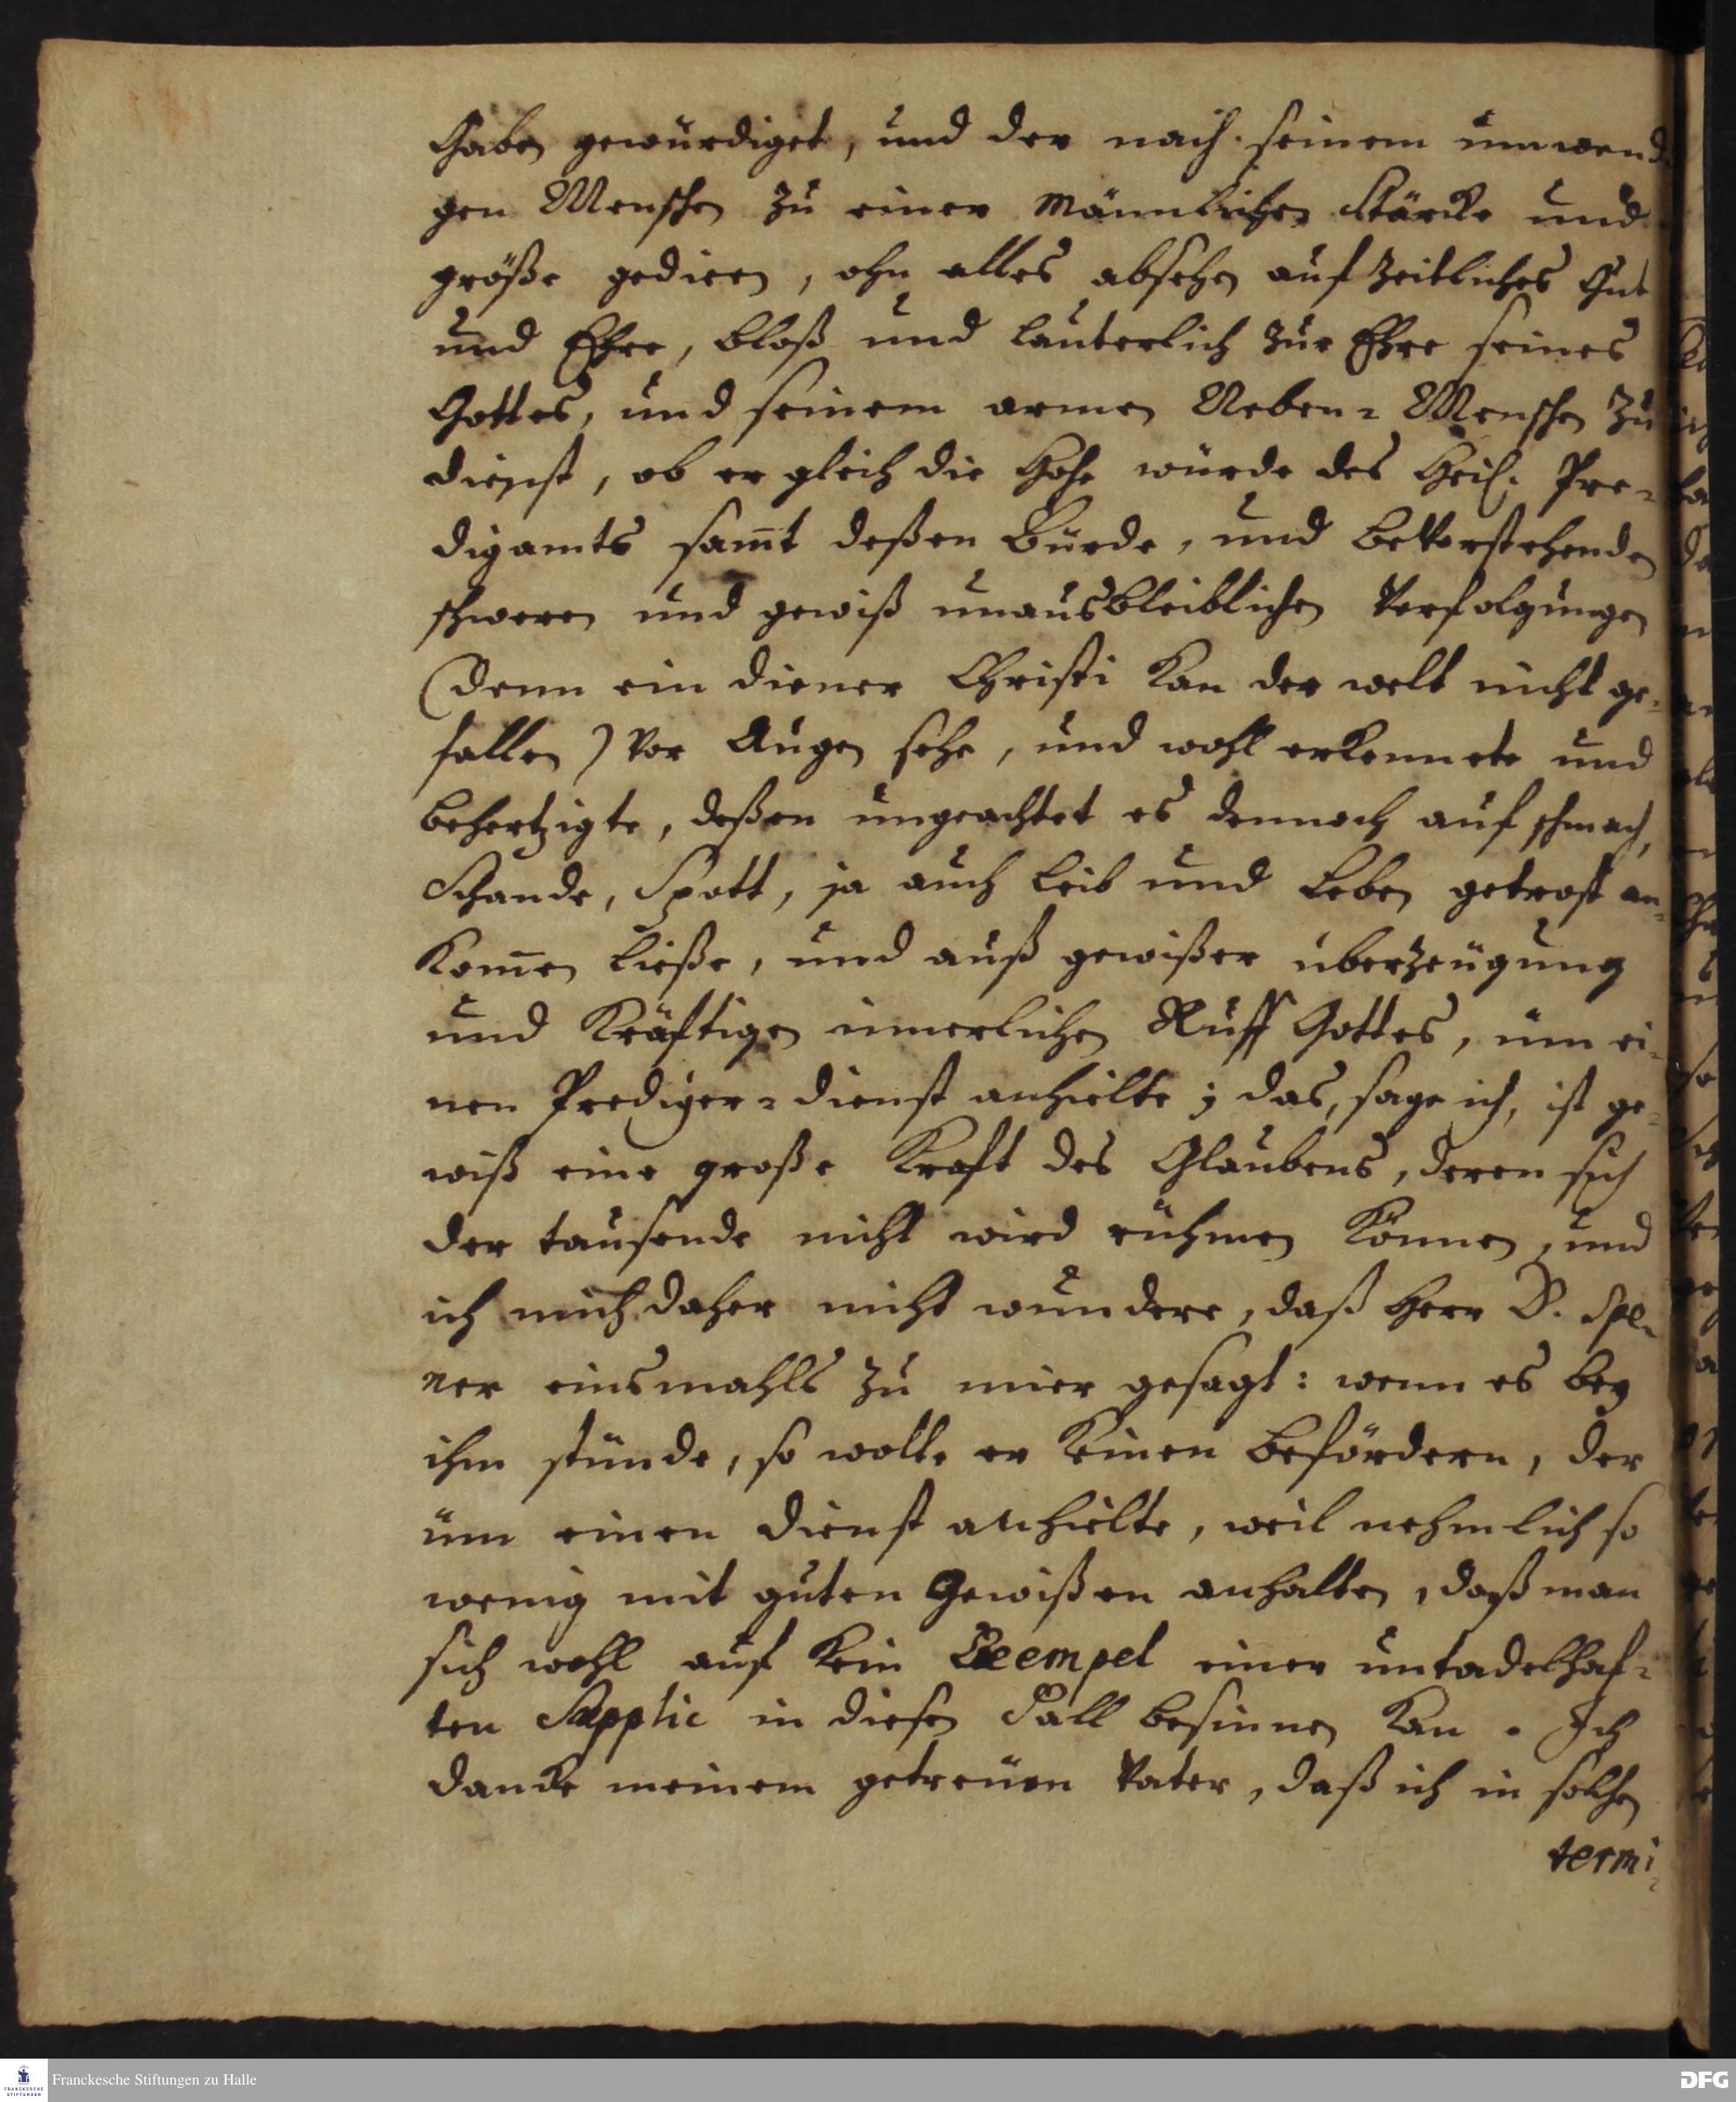 Gaben gewürdiget, und der nach seinem innwendi
gen Menschen zu einer Männlichen Stärcke und
größe gedieen, ohn alles absehen auf zeitliches Gut
und Ehre, bloß und lauterlich zur Ehre seines
Gottes, und seinem armen Neben- Menschen zu
dienst, ob er gleich die Hohe würde des Heil. Pre-
digamts sam̄t deßen Bürde, und bevorstehenden
schweren und gewiß unausbleiblichen Verfolgungen
(denn ein diener Christi kan der welt nicht ge-
fallen) vor Augen sehe, und wohl erkennete und
behertzigte, deßen ungeachtet es dennoch auf schmach,
Schande, Spott, ja auch Leib und Leben getrost an-
kom̄en ließe, und auß gewißer überzeügung
und kräftigen innerlichen Ruff Gottes, üm ei-
nen Prediger-dienst anhielte; das, sage ich, ist ge-
wiß eine große Kraft des Glaubens, deren sich
der tausende nicht wird rühmen können, und
ich mich daher nicht wundere, daß Herr D. Spe-
ner einsmahls zu mier gesagt: wenn es bey
ihm stünde, so wolte er keinen befördern, der
üm einen dienst anhielte, weil nehmlich so
wenig mit guten Gewißen anhalten, daß man
sich wohl auf kein Exempel einer untadelhaf-
ten Supplic in diesen Fall besinnen kan. Ich
dancke meinem getreuen Vater, daß ich in solchen
termi-
Franckesche Stiftungen zu Halle
FRANCKESCHE
STIFTUNGEN
DFG